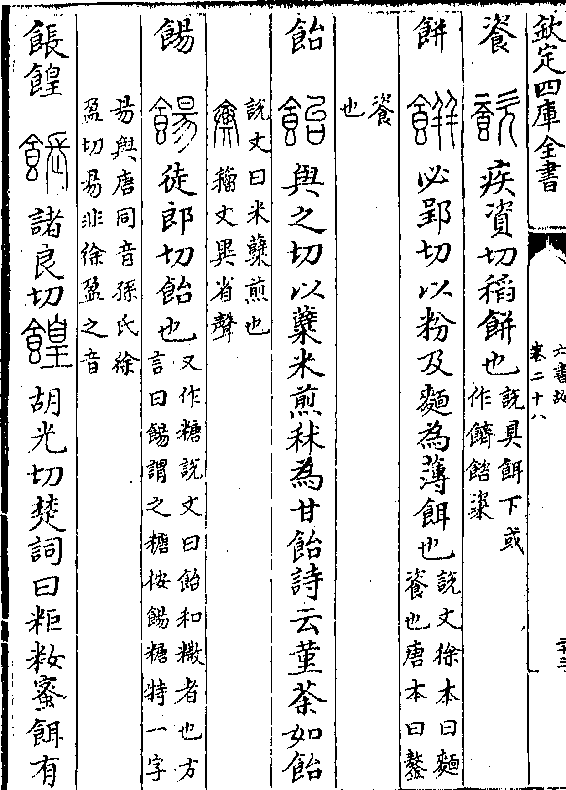 欽定四庫全書
六書故
卷二十八
餈 疾資切稻餅也說具餌下或
作䭣粢
餅 必郢切以粉及麵為薄餌也說文徐本曰麵
餈也唐本曰
餈
也
飴 與之切以糵米煎秫為甘飴詩云堇荼如飴
說文曰米糵煎也
籀文異省聲
餳 徒郎切飴也又作糖說文曰飴和糤者也方
言曰餳謂之糖按餳糖特一字
昜與唐同音孫氏徐
盈切易非徐盈之音
餦餭 諸良切 胡光切楚詞曰粔籹蜜餌有